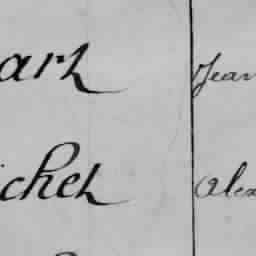 art Jean
ichel Alex